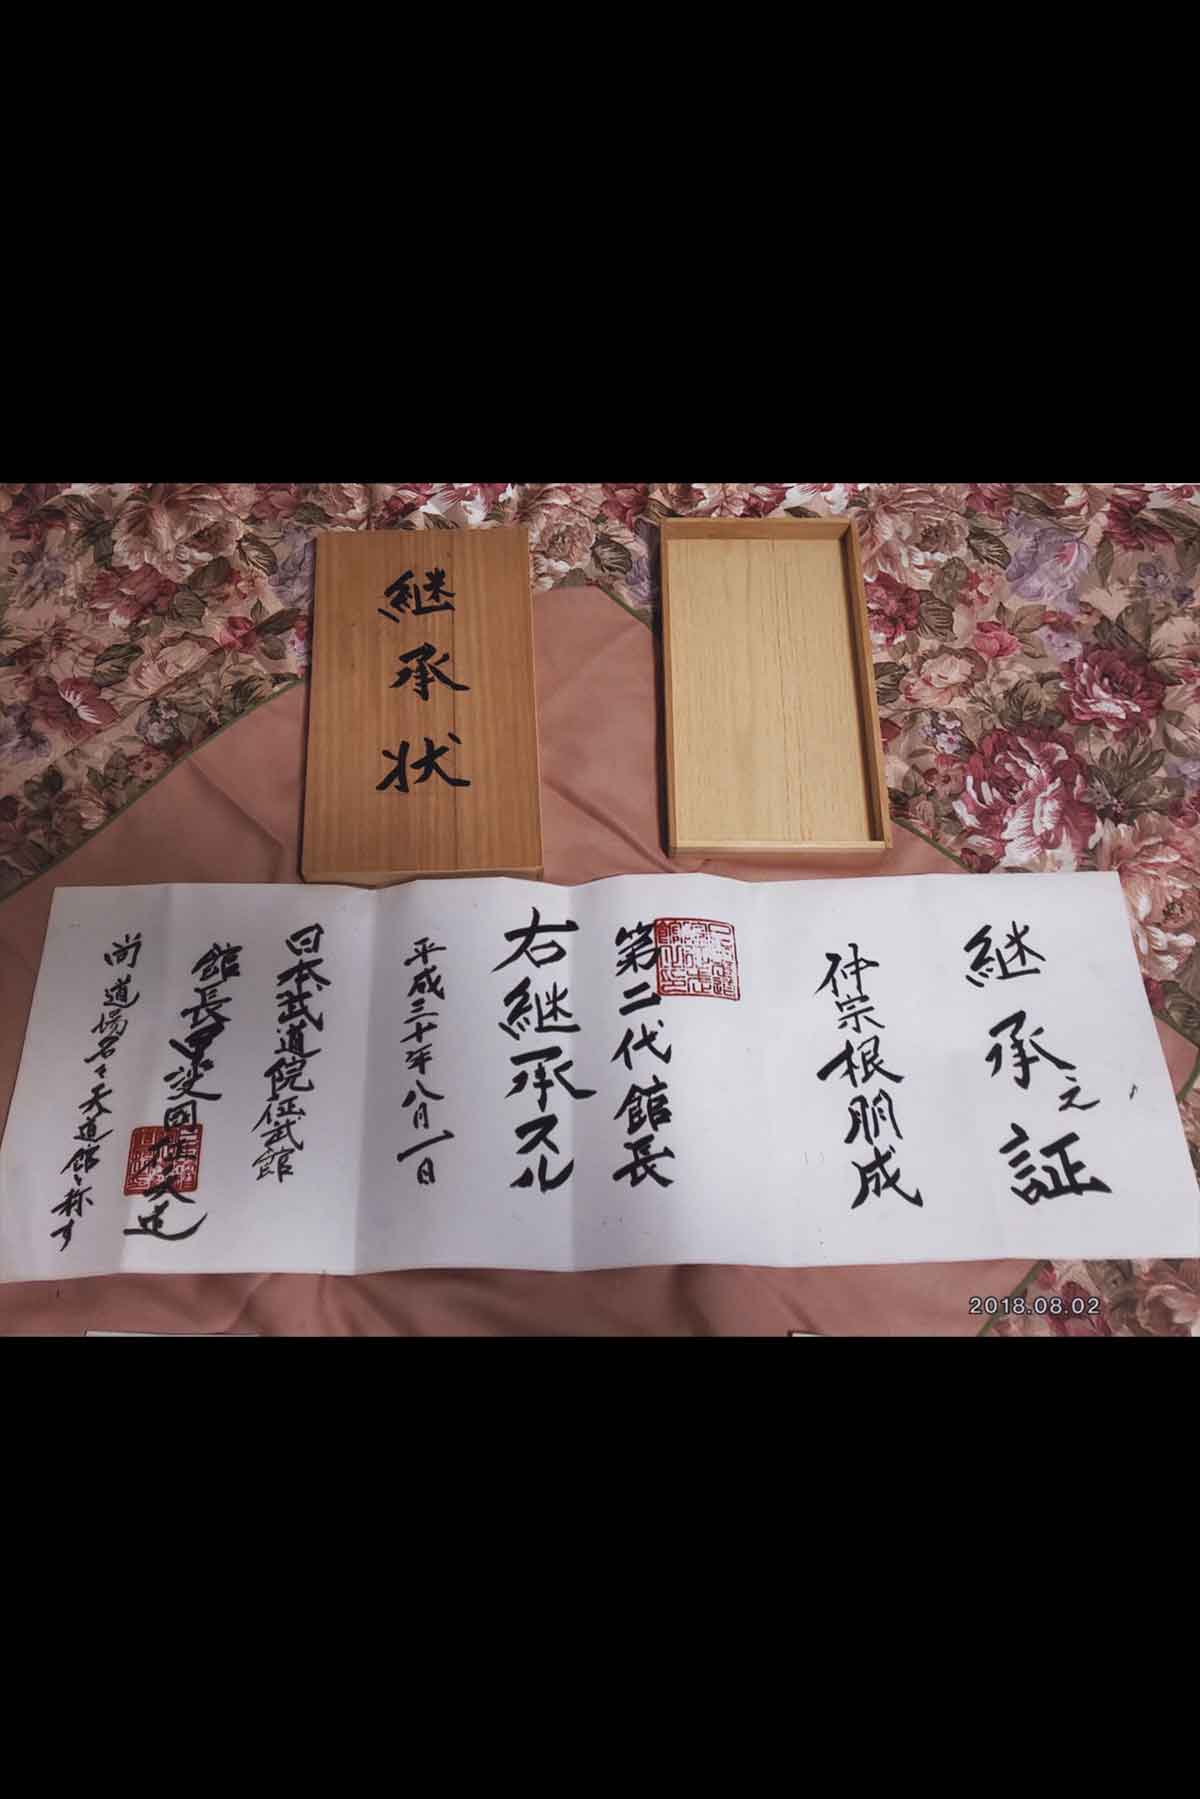 継承状
継承之証
仲宗根朋成
第二代館長
右継承スル
平成三十年八月一日
日本武道院征武館
館長 國 道
尚道場名を天道館と称す
2018.08.02